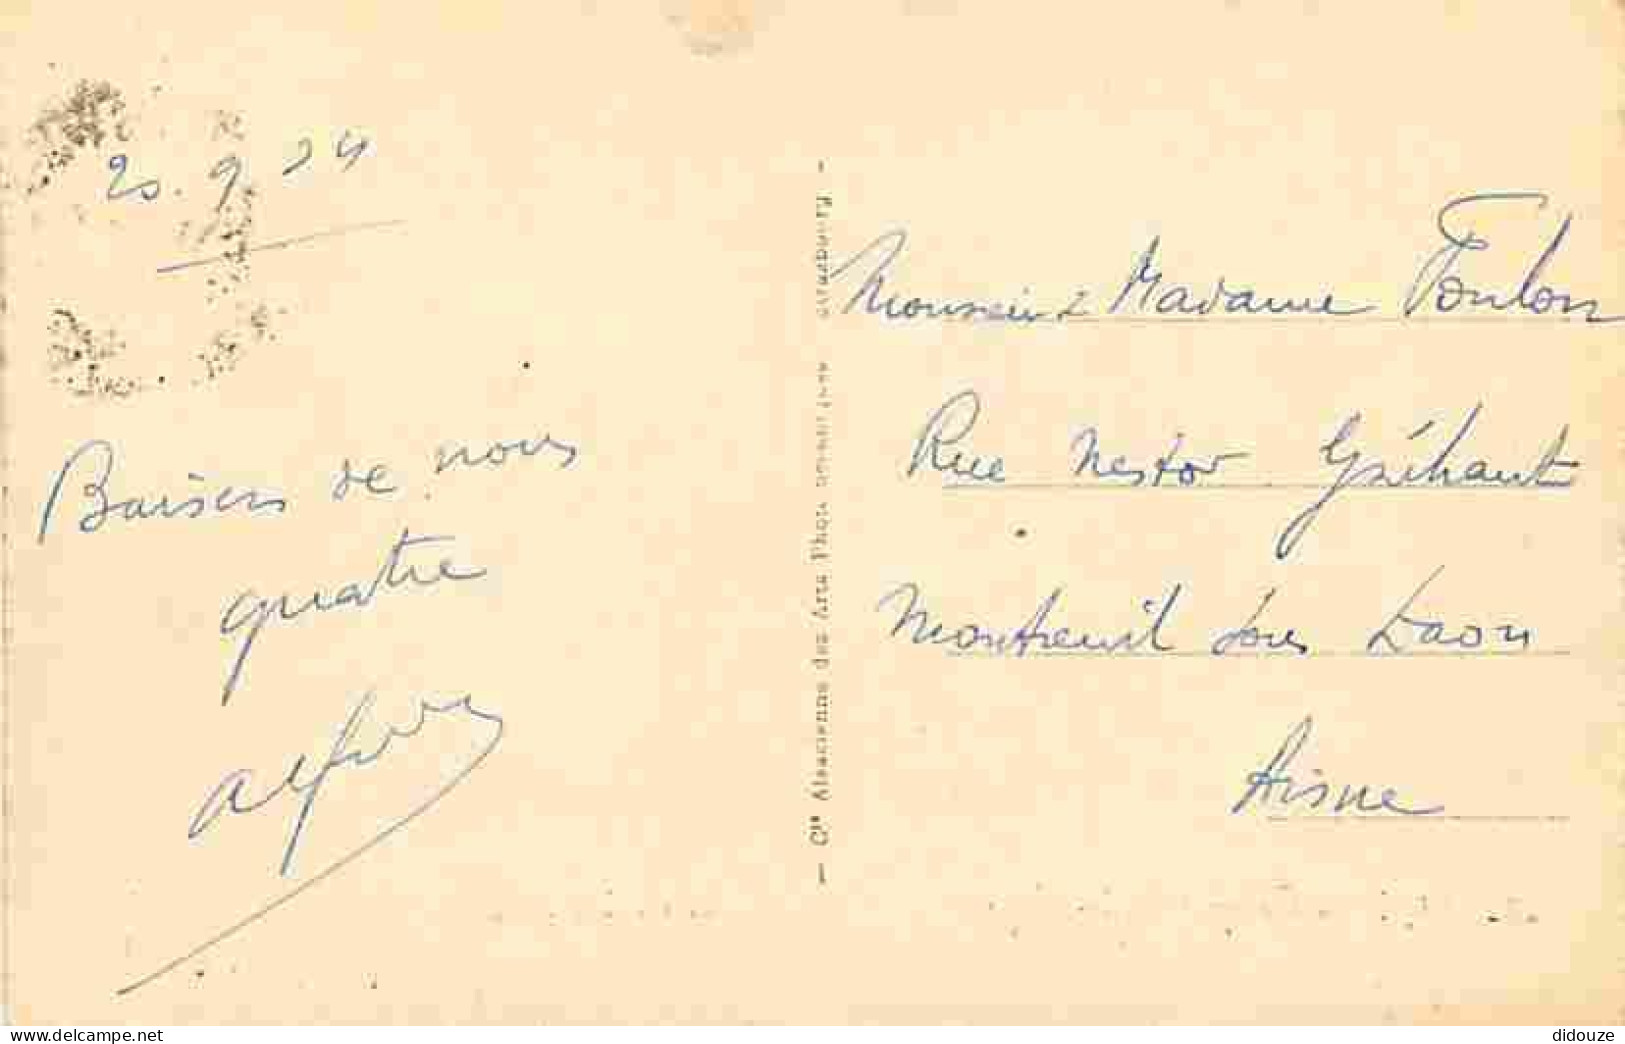 20. 9 34
Baisers de nous
quatre
— Cie Alsacienne des Arts Photomécaniques Strasbourg —
Monsieur & Madame Foulon
Rue Nestor Gréhant
Montreuil sous Laon
Aisne
www.delcampe.net
didouze